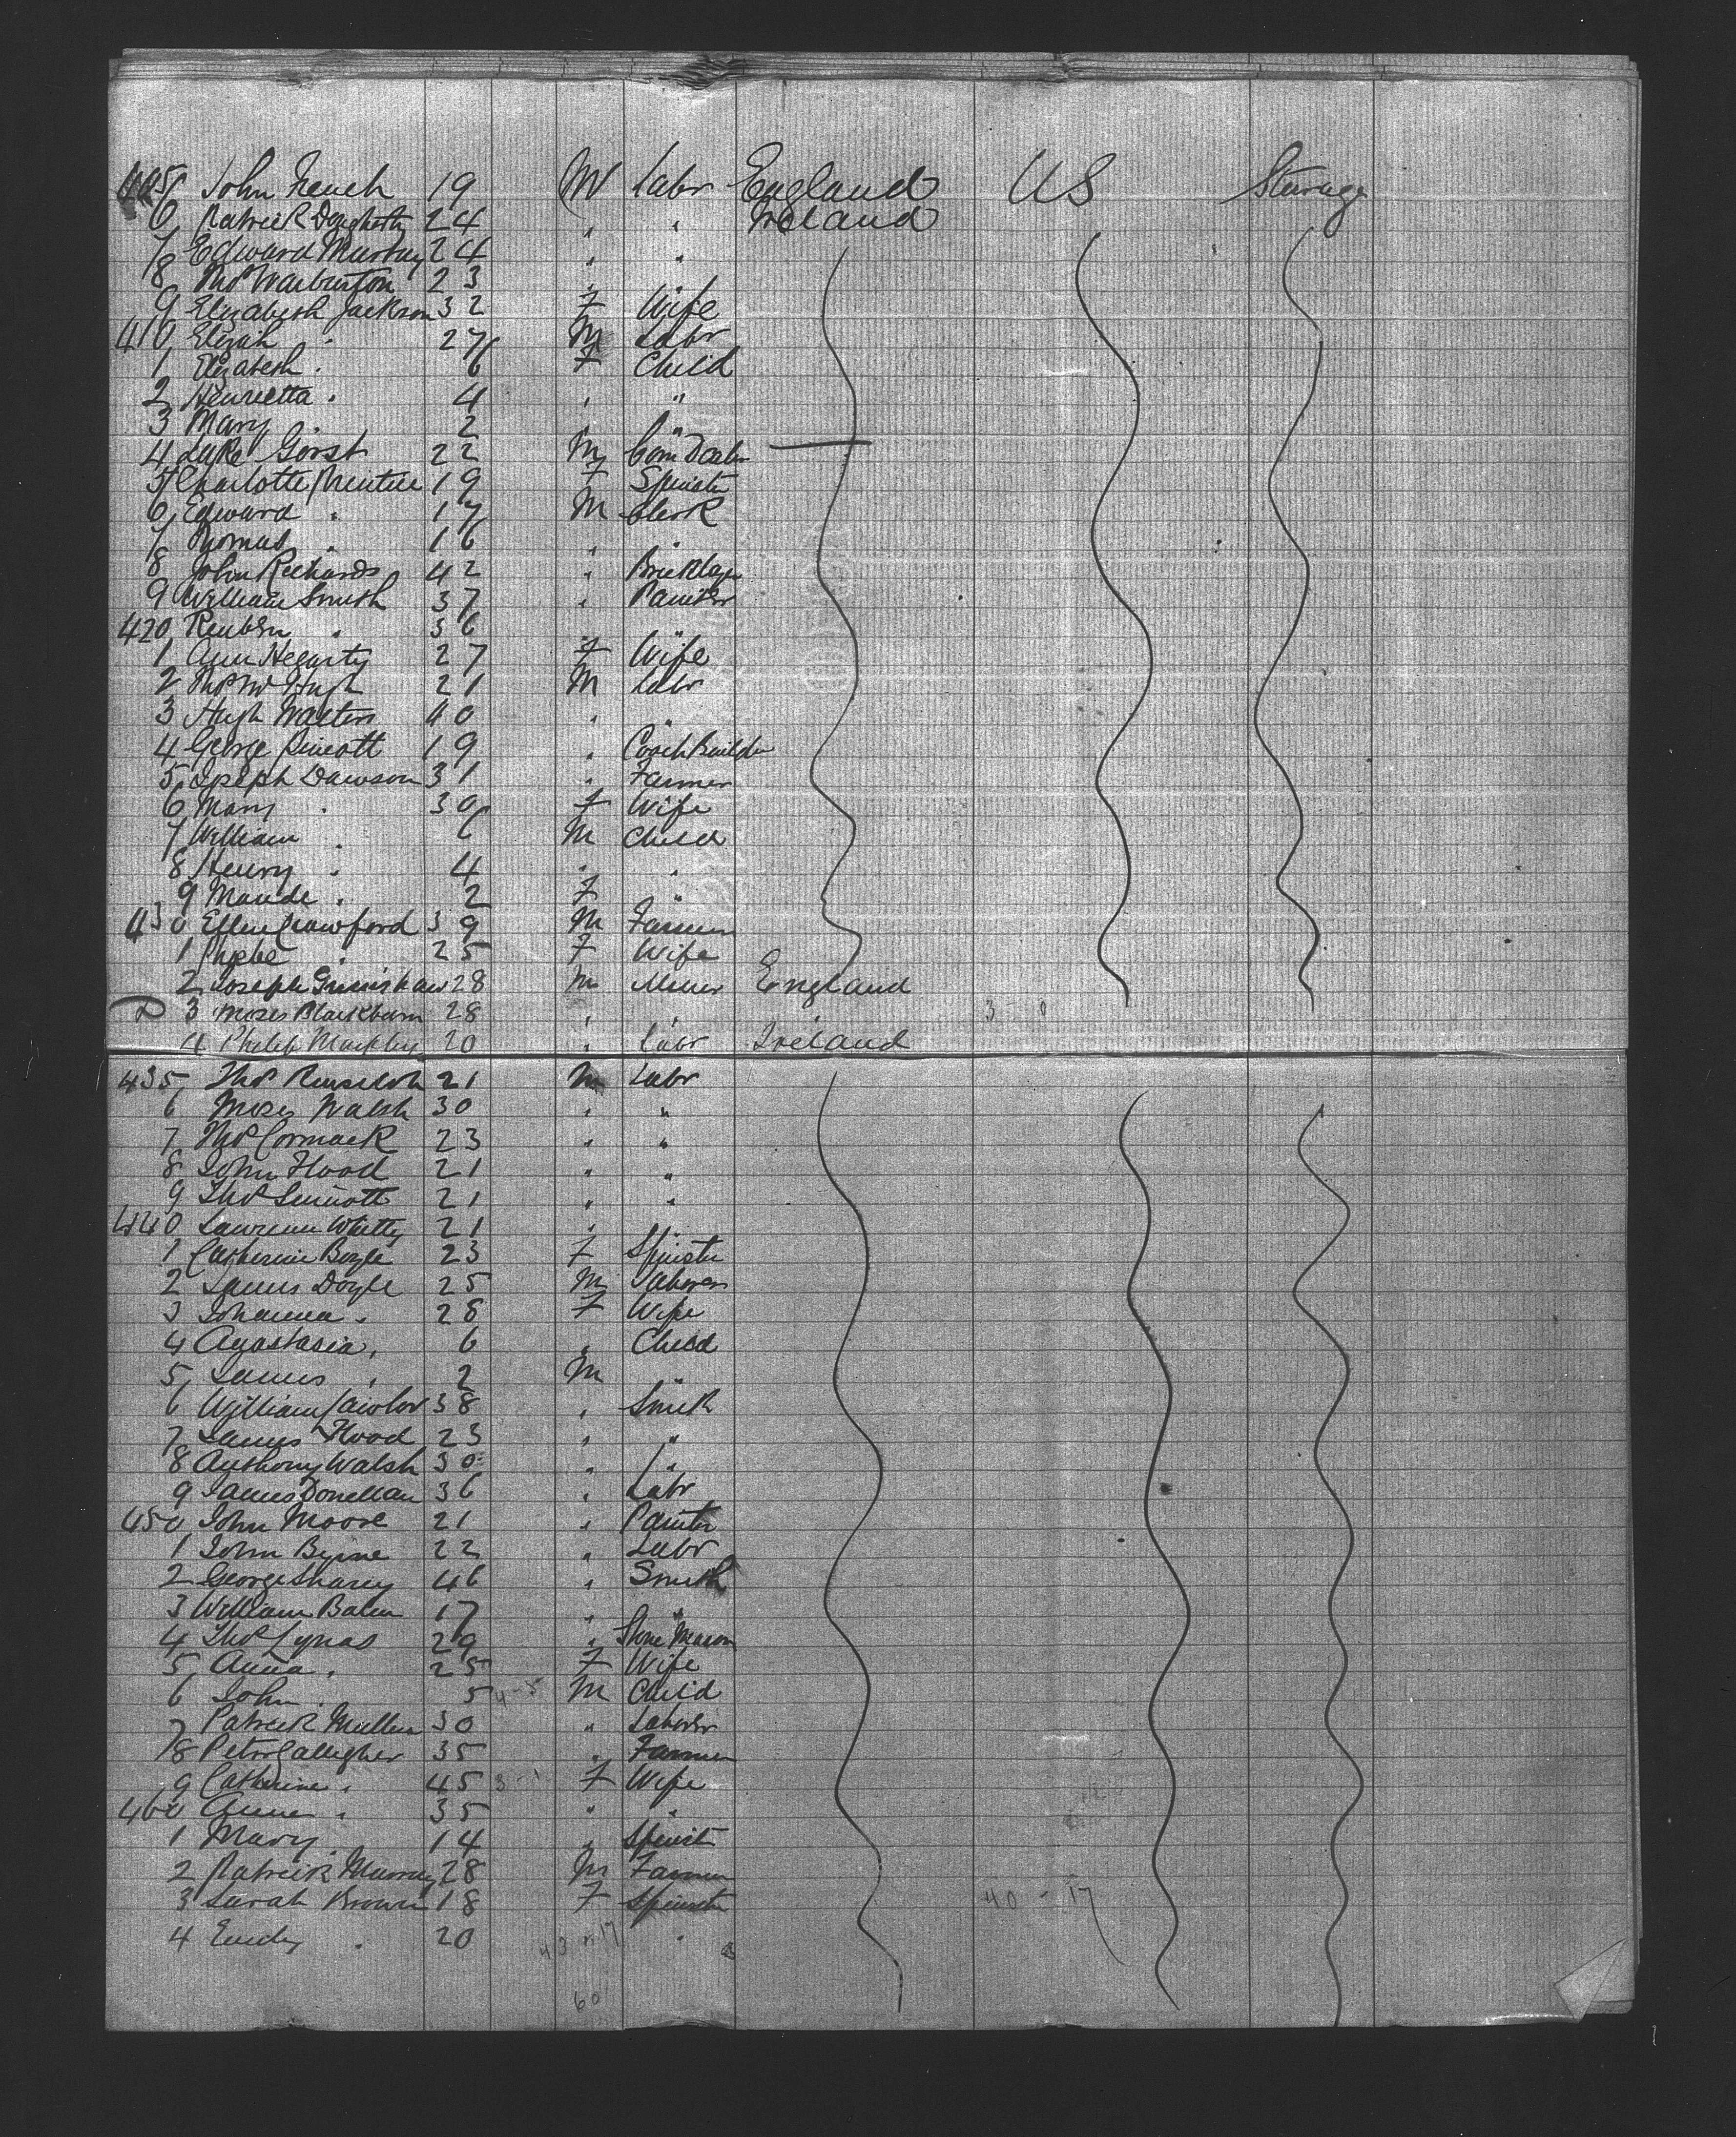 405 John French 19 M Labr England US Steerage
6 Patrick Dougherty 24 " " Ireland
7 Edward Murray 24 " "
8 Thos Warburton 23 "
9 Elizabeth Jackson 32 F Wife
410 Elijah " 27 M Labr
1 Elizabeth " 6 F Child
2 Henrietta " 4 " "
3 Mary " 2 "
4 Luke Gorst 22 M Corn Dealer
5 Charlotte Prentice 19 F Spinster
6 Edward " 17 M Clerk
7 Thomas " 16 " "
8 John Richards 42 " Bricklayer
9 William Smith 37 " Painter
420 Reuben " 36 " "
1 Ann Hegarty 27 F Wife
2 Thos Mc Hugh 21 M Labr
3 Hugh Walters 40 " "
4 George 19 " Coach Builder
5 Joseph Dawson 31 " Farmer
6 Mary " 30 F Wife
7 William " 6 M Child
8 Henry " 4 " "
9 Maude " 2 F "
430 Ellen Crawford 39 M Farmer
1 Phebe " 25 F Wife
2 Joseph Grimshaw 28 M Miner England
D 3 Moses Blackburn 28 " " 3 - 0
4 Philip 20 " Labr Ireland
435 Thos 21 M Labr
6 Moses Walsh 30 " "
7 Thos Cormack 23 " "
8 John Flood 21 " "
9 Thos Sinnott 21 " "
440 Lawrence Whitty 21 "
1 Catherine Boyle 23 F Spinster
2 James Doyle 25 M Laborer
3 Johanna " 28 F Wife
4 Anastasia " 6 " Child
5 James " 2 M "
6 William Lawlor 38 " Smith
7 James Flood 23 " "
8 Anthony Walsh 30 " "
9 James Donellan 36 " Labr
450 John Moore 21 " Painter
1 John Byrne 22 " Labr
2 George 46 " Smith
3 William 17 " "
4 Thos Lynas 29 " Stone Mason
5 Anna " 25 F Wife
6 John " 5 M Child
7 Patrick Mullen 30 " Laborer
8 Peter Gallegher 35 " Farmer
9 Catherine " 45 3 - 1 F Wife
460 Anne " 35 " "
1 Mary " 14 " Spinster
2 Patrick Murray 28 M Farmer
3 Sarah Brown 18 F Spinster 40 - 17
4 Emily " 20 43 - 17 "
60